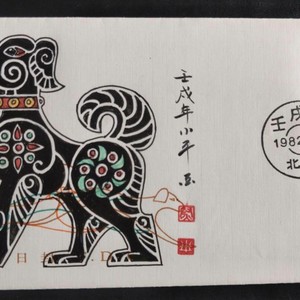 壬戌年小平画
壬戌
1982
北
日封